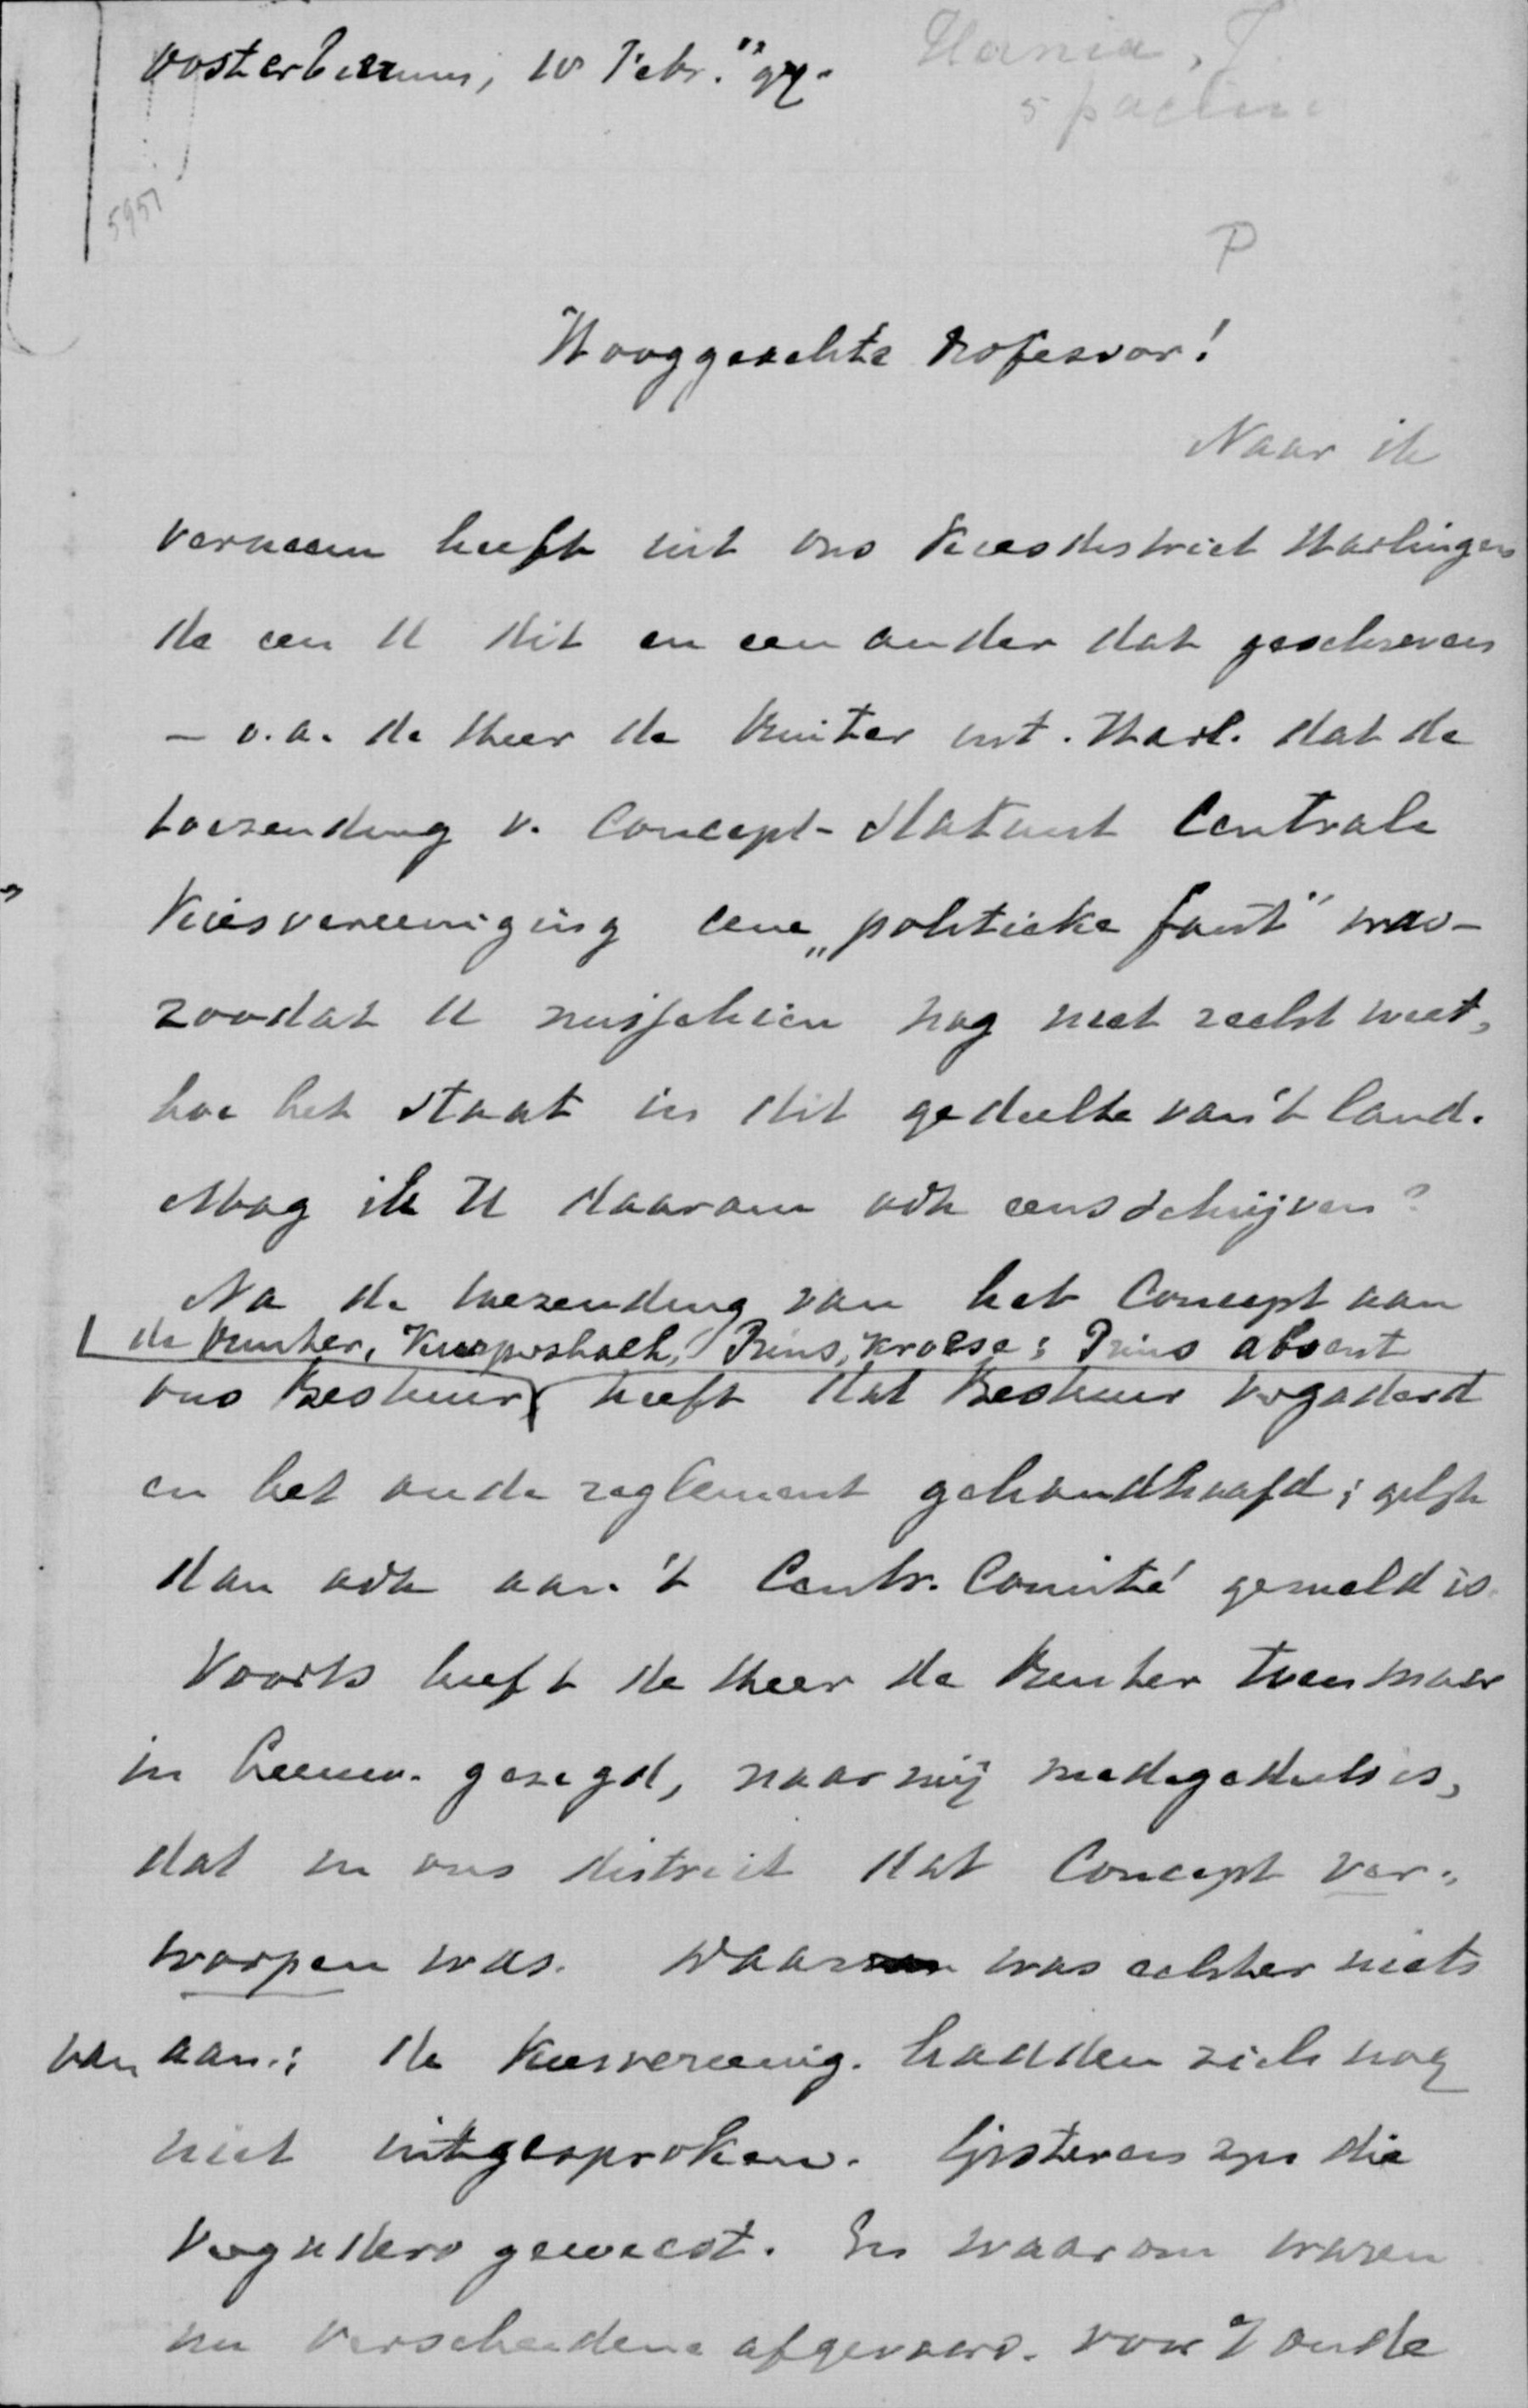 Oosterbierum, 10 Febr. "97.
Hania, J.
5951
P
Hooggeachte Professor!
Naar ik
verneem heeft uit ons Kiesdistrict Harlingen
de een U dit en een ander dat geschreven
– o.a. de Heer de Ruiter uit Harl. dat de
toezending v. Concept-Statuut Centrale
Kiesvereeniging eene „politieke fout" was –
zoodat U misschien nog niet recht weet,
hoe het staat in dit gedeelte van 't land.
Mag ik U daarom ook eens schrijven?
Na de toezending van het Concept aan
de Ruiter, Prins, Kroese; Prins absent
ons Bestuur heeft dat Bestuur vergaderd
en het oude reglement gehandhaafd; gelijk
dan ook aan 't Centr. Comité gemeld is.
Voorts heeft de Heer de Ruiter tweemaal
in Leeuw. gezegd, naar mij medegedeeld is,
dat in ons district dat Concept ver-
worpen was. Daar was echter niets
van aan; de Kiesvereenig. hadden zich nog
niet uitgesproken. Gisteren zijn die
vergaderd geweest. En waarom waren
nu verscheidene afgevaard. voor 't oude